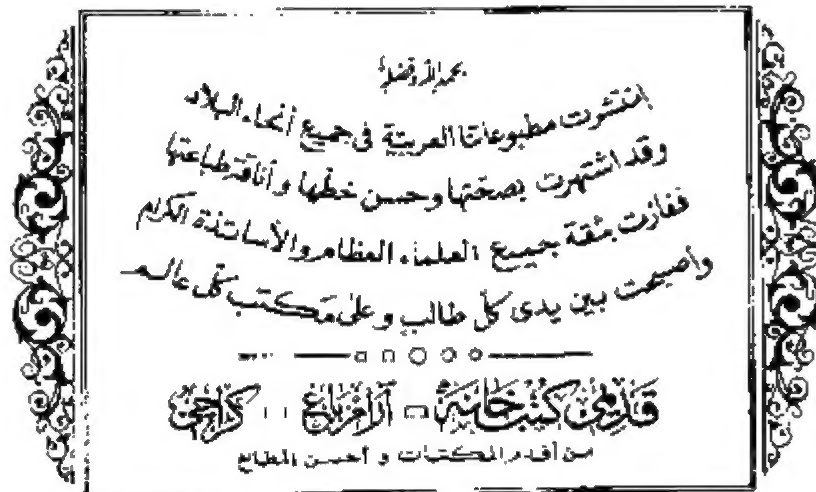 بحمد الله وفضله
إنتشرت مطبوعاتنا العربية فى جميع أنحاء البلاد
وقد اشتهرت بصحتها وحسن خطها وأناقة طباعتها
ففازت بثقة جميع العلماء العظام والأساتذة الكرام
وأصبحت بين يدى كل طالب وعلى مكتب كل عالم
قديمى كتب خانه - آرام باغ - كراچى
من أقدم المكتبات و أحسن المطابع